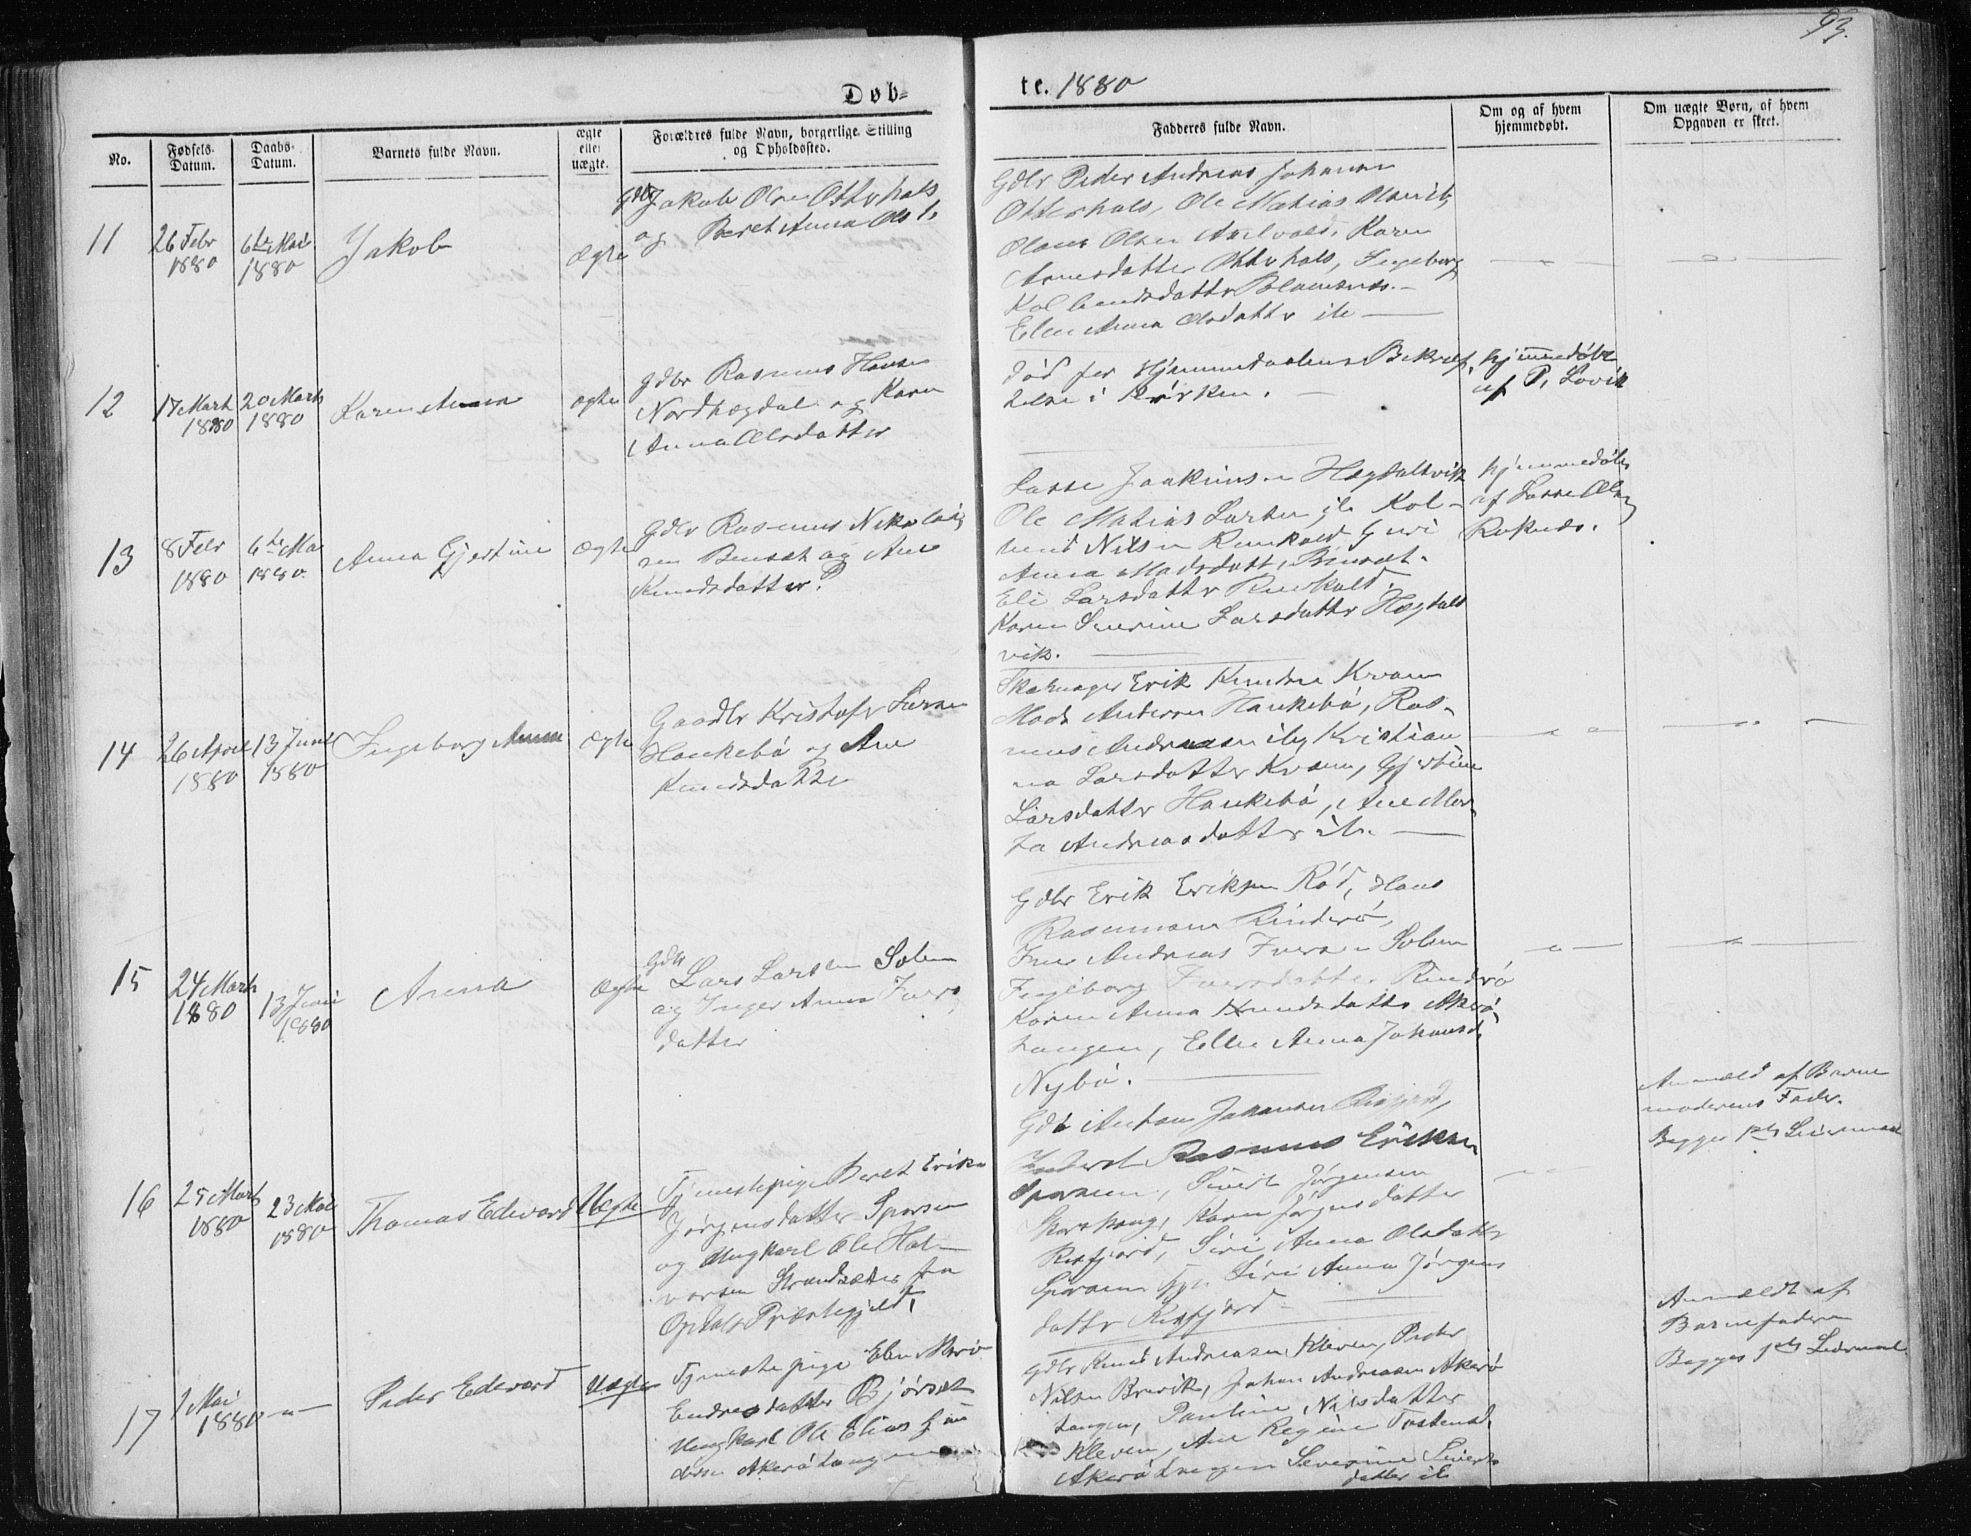 93.
Døb=
te. 1880
No.
Fødsels-
Datum.
Daabs-
Datum.
Barnets fulde Navn.
ægte
eller
uægte.
Forældres fulde Navn, borgerlige Stilling
og Opholdssted.
Fadderes fulde Navn.
Om og af hvem
hjemmedøbt.
Om uægte Børn, af hvem
Opgaven er skeet.
11
26 Febr
1880
6te Mai
1880
Jakob
Ægte
Gdbr Jakob Olsen Otterhals
og Beret Anna Olsd
Gdbr Peder Andreas Johansen
Otterhals, Ole Mathias
Olaus Olsen Karen
Arnesdatter Otterhals, Ingeborg
Elen Anna Olsdatter ib
12
17 Marts
1880
20 Marts
1880
Karen Anna
ægte
Gdbr Rasmus Hansen
Nordhægdal og Karen
Anna Olsdatter
Død før Hjemmedaabens Bekræf-
telse i Kirken.
hjemmedøbt
af P. Løvik
13
8 Febr
1880
6te Mai
1880
Anna Gjertine
Ægte
Gdbr Rasmus Nikolai
sen Bendset og Ane
Knudsdatter
Lasse Joakimsen Hægdalsvik
Ole Mathias Larsen ib Kol-
Nilsen
Anna Madsdatt,
Eli Larsdatter
Karen Severine Larsdatter Hægdals
vik.
hjemmedøbt
af Lasse Olsen
Raknes.
14
26 April
1880
13 Juni
1880
Ingeborg Anna
Ægte
Gaardbr Kristofer Larsen
Haukebø og Ane
Knudsdatter
Erik Knudsen Kvam
Mads Andersen Haukebø, Ras-
mus Andreasen ib, Kristian
na Larsdatter Kvam, Gjertine
Larsdatter Haukebø, Ane Mar
ta Andreasdatter ib.
15
24 Marts
1880
13 Juni
1880
Anna
Ægte
Gdbr
Lars Larsen Solem
og Inger Anna Ivers
datter
Gdbr Erik Eriksen Rød, Hans
Rasmussen Rinderø,
Andreas Iversen Solem
Ingeborg Iversdatter Rinderø
Karen Anna Knudsdatter Akerø
tangen, Ellen Anna Johansd.
Nybø.
16
25 Marts
1880
23 Mai
1880
Thomas Edvard
Uægte
Tjenestepige Beret Erika
Jørgensdatter Sporsem
og Ungkarl Ole Hal-
vorsen Strandsæter fra
Opdals Præstegjeld,
Gdb Anton Johansen
Rasmus Eriksen
Sporsem, Sivert Jørgensen
Karen Jørgensdatter
Siri Anna Olsdatter
Sporsem Siri Anna Jørgens
datter
Anmeldt af Barne
moderens Fader.
Begges 1ste Leiermaal
17
1 Mai
1880
-"-
Peder Edvard
Uægte
Tjenestepige Elen
Endresdatter Bjørset
Ungkarl Ole Elias
Akerøtangen
Gdbr Knud Andreasen Kleven, Peder
Nilsen Brevik, Johan Andreasen Akerø
tangen, Pauline Nilsdatter
Kleven, Ane Regine Tostensd.
Akerøtangen Severine Siverts
datter ib
Anmeldt af
Barnefaderen
Begges 1ste Leiermaal